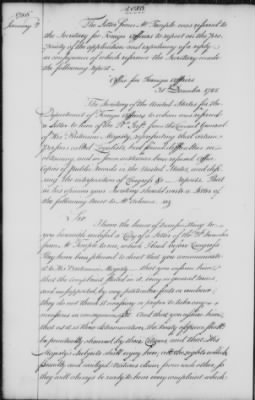 1786
January
The Letter from Mr Temple was referred to
the Secretary for Foreign Affairs to report on the pro-
priety of the application and expediency of a reply
in consequence of which reference the Secretary made
the following report.
Office for Foreign Affairs
31 December 1785
The Secretary of the United States for the
Department of Foreign Affairs to whom was referred
a Letter to him of the from the Consul General
of His Britannic Majesty, representing that certain
Persons called Loyalists, had found difficulties in
obtaining, and in some instances been refused Office
Copies of Public records in the United States, and
the interposition of Congress &c. Reports. That
in his opinion your Secretary should write a Letter of
the following tenor to Mr Adams.
Sir
I have the honor of transmitting to
you herewith enclosed a Copy of a Letter of the
from Mr Temple to me, which I laid before Congress
They have been pleased to direct that you communicate
to His Britannic Majesty that you inform him,
that the complaint stated in it, being in general terms,
and unsupported by any particular facts or evidence,
they do not think it necessary or proper to take any
measures in consequence of it. And that you assure him,
that as it is their determination, the Treaty of Peace shall
be punctually observed by their Citizens, and that His
Majesty's Subjects shall enjoy here, all the rights which
friendly and civilized Nations claim from each other, so
they will always be ready to hear every complaint which